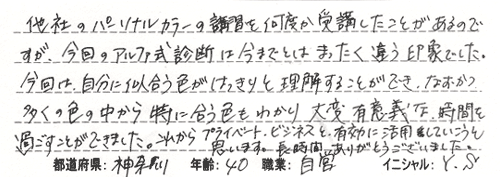 他社のパーソナルカラーの講習を何度か受講したことがあるので
すが、今回のアルファ式診断は今までとはまったく違う印象でした。
今回は、自分に似合う色がはっきりと理解することができ、なおかつ
多くの色の中から特に合う色もわかり大変有意義な時間を
過ごすことができました。これからプライベート・ビジネスと、有効に活用していこうと
思います。長時間、ありがとうございました。
都道府県：神奈川 年齢：40 職業：自営 イニシャル：Y.S